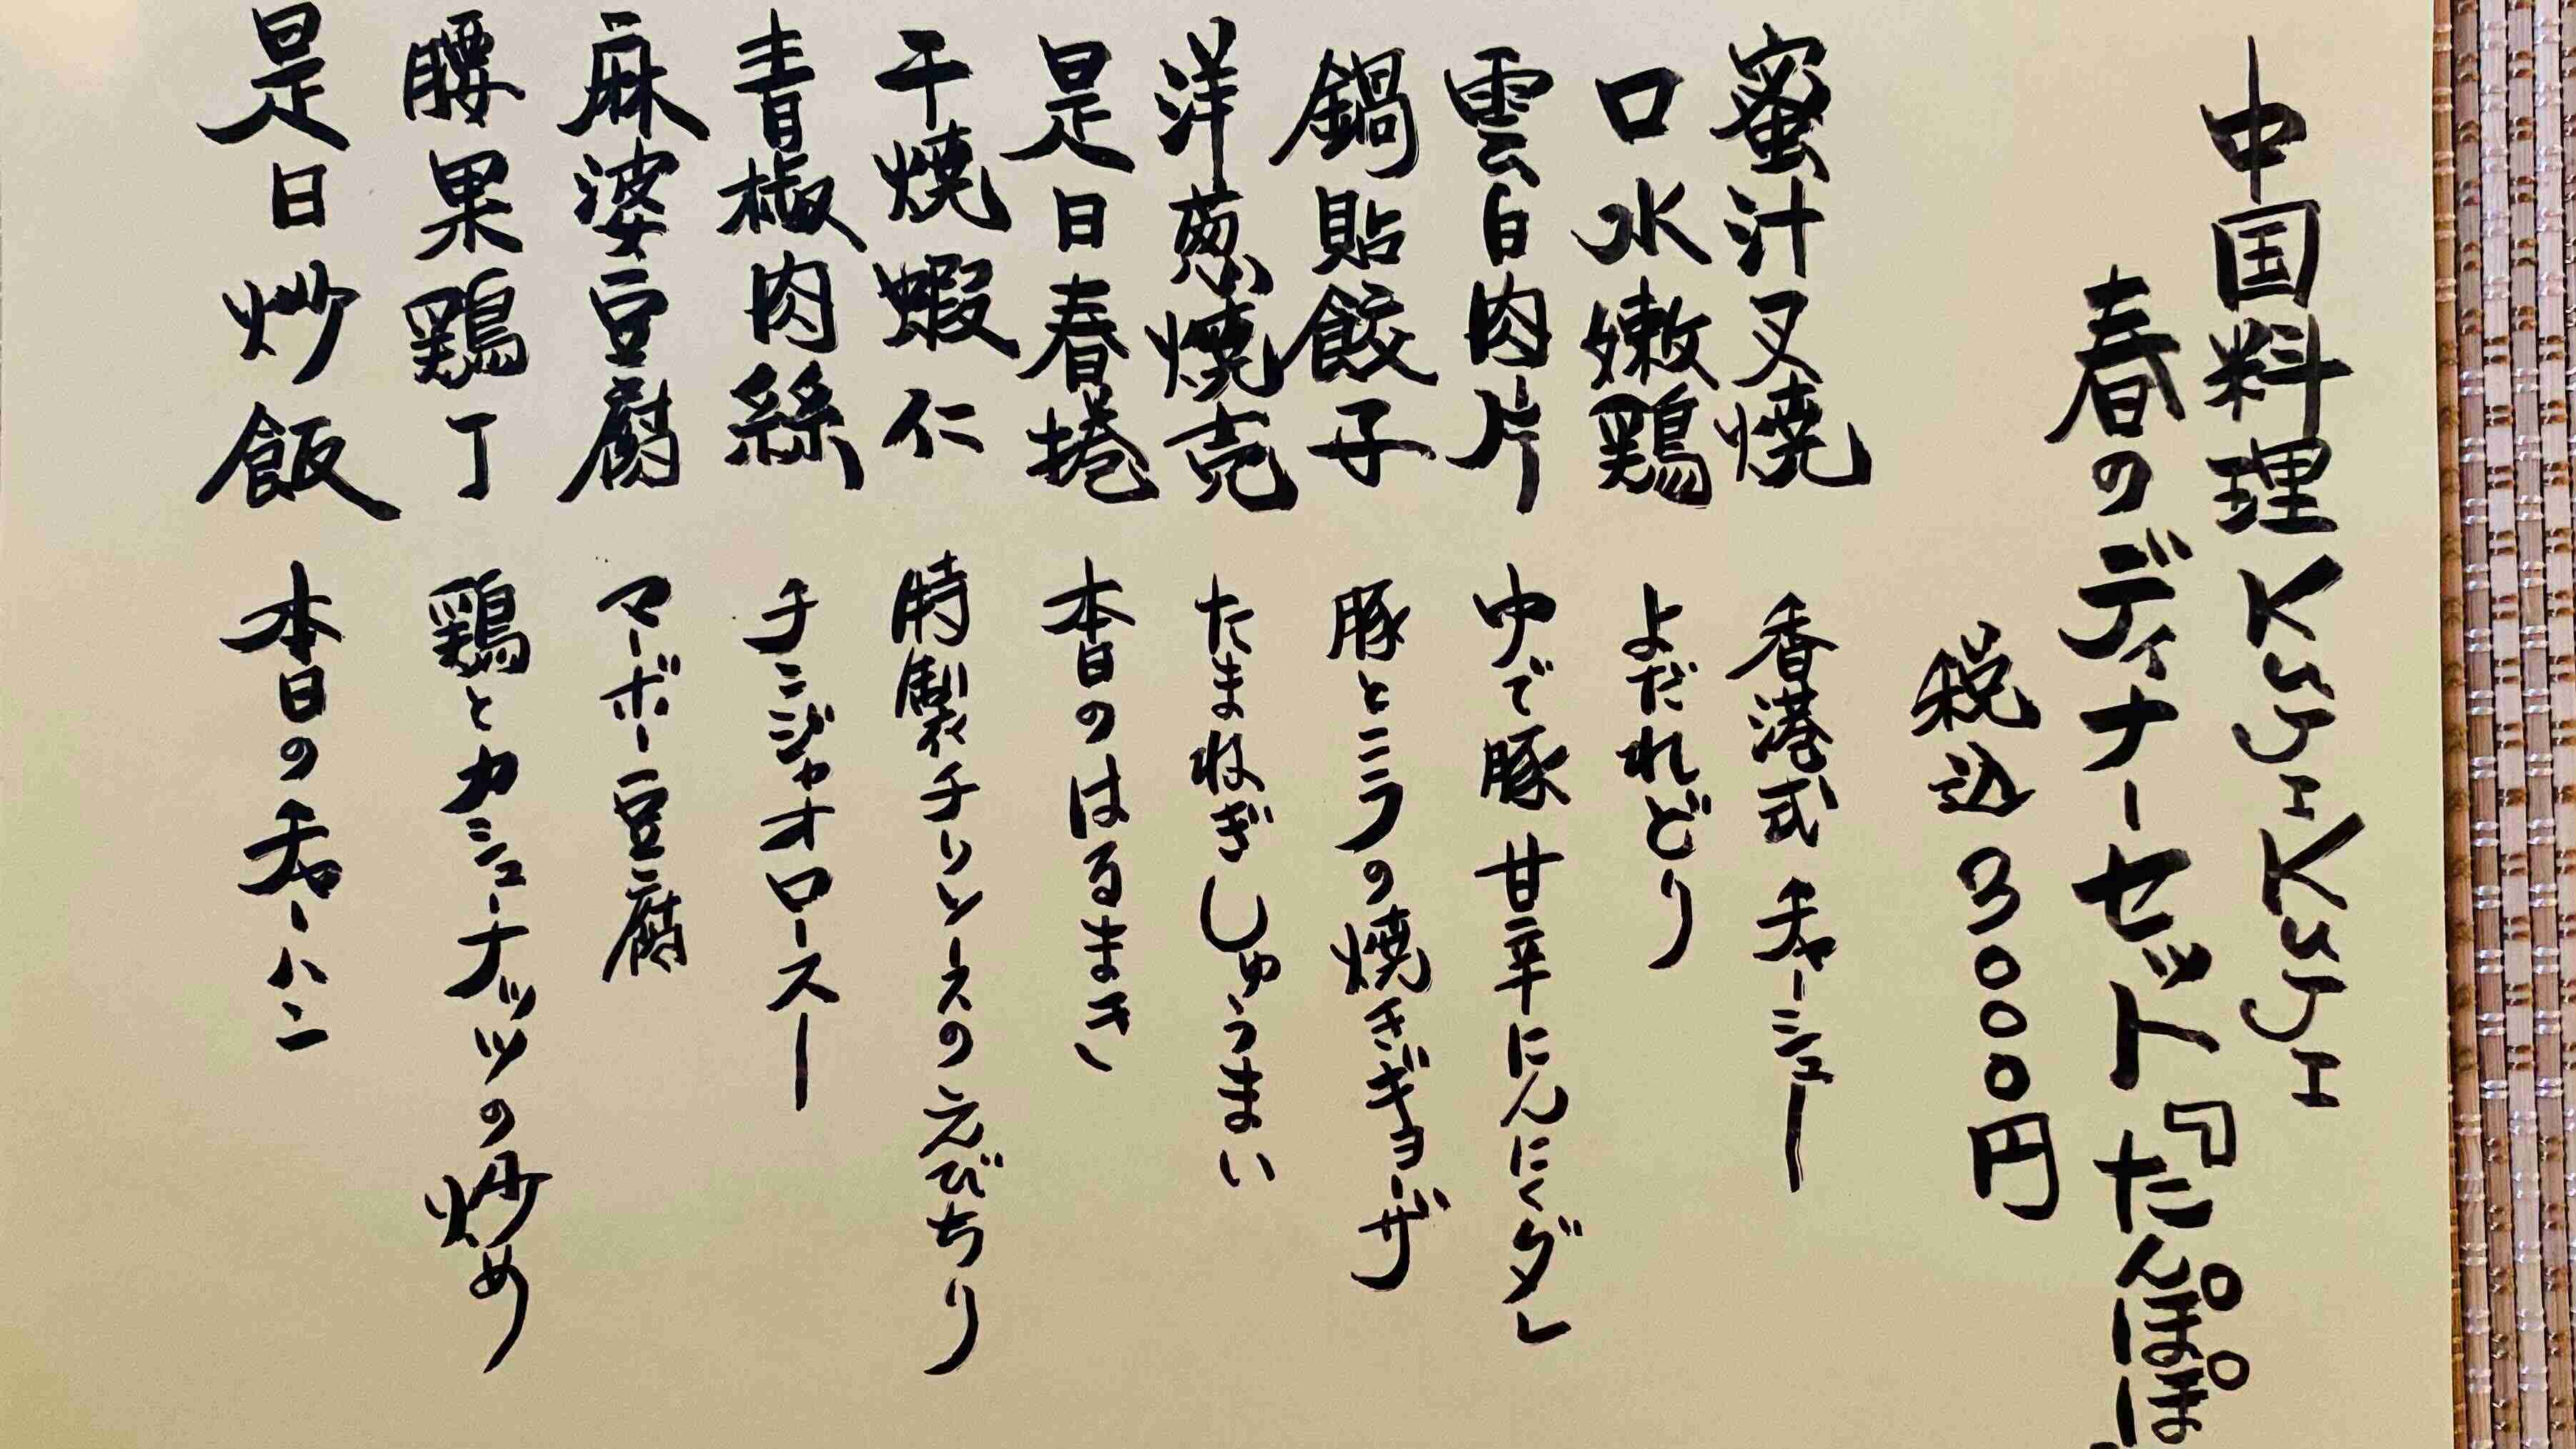 中国料理KUJIKUJI
春のディナーセット『たんぽぽ
税込3000円
蜜汁叉焼 香港式チャーシュー
口水嫩鶏 よだれどり
雲白肉片 ゆで豚 甘辛にんにくダレ
鍋貼餃子 豚とニラの焼きギョーザ
洋葱焼売 たまねぎしゅうまい
是日春捲 本日のはるまき
干焼蝦仁 時製チリソースのえびちり
青椒肉絲 チンジャオロースー
麻婆豆腐 マーボー豆腐
腰果鶏丁 鶏とカシューナッツの炒め
是日炒飯 本日のチャーハン